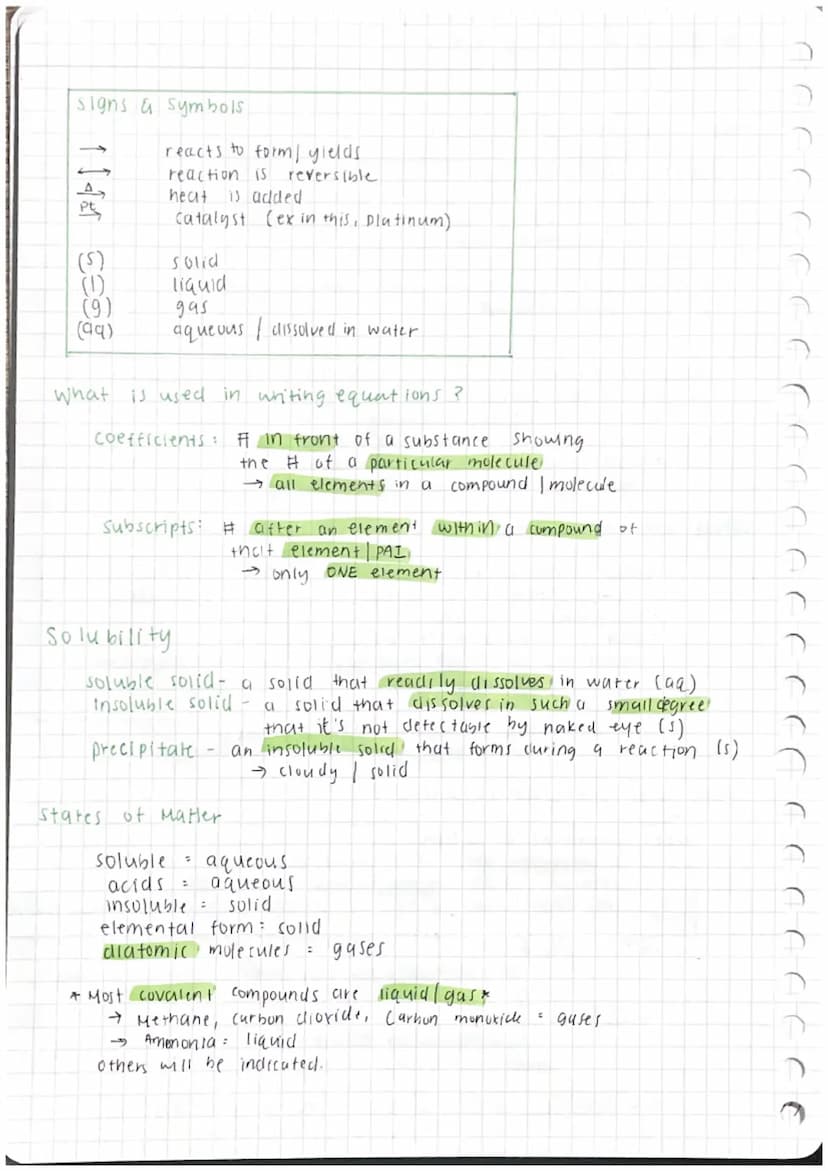 Signs & Symbols
→ reacts to form/yields
↔ reaction is reversible
Δ→ heat is added
Pt→ catalyst (ex in this, platinum)
(s) solid
(l) liquid
(g) gas
(aq) aqueous / dissolved in water
What is used in writing equations?
coefficients: # in front of a substance showing
the # of a particular molecule
→ all elements in a compound/molecule
subscripts: # after an element within a compound of
that element/PAI
→ only ONE element
Solubility
soluble solid- a solid that readily dissolves in water (aq)
insoluble solid - a solid that dissolves in such a small degree
that it's not detectable by naked eye (s)
precipitate - an insoluble solid that forms during a reaction (s)
→ cloudy / solid
States of Matter
soluble = aqueous
acids = aqueous
insoluble = solid
elemental form: solid
diatomic molecules = gases
* Most covalent compounds are liquid/gas *
→ Methane, carbon dioxide, Carbon monoxide = gases
→ Ammonia = liquid
others will be indicated.